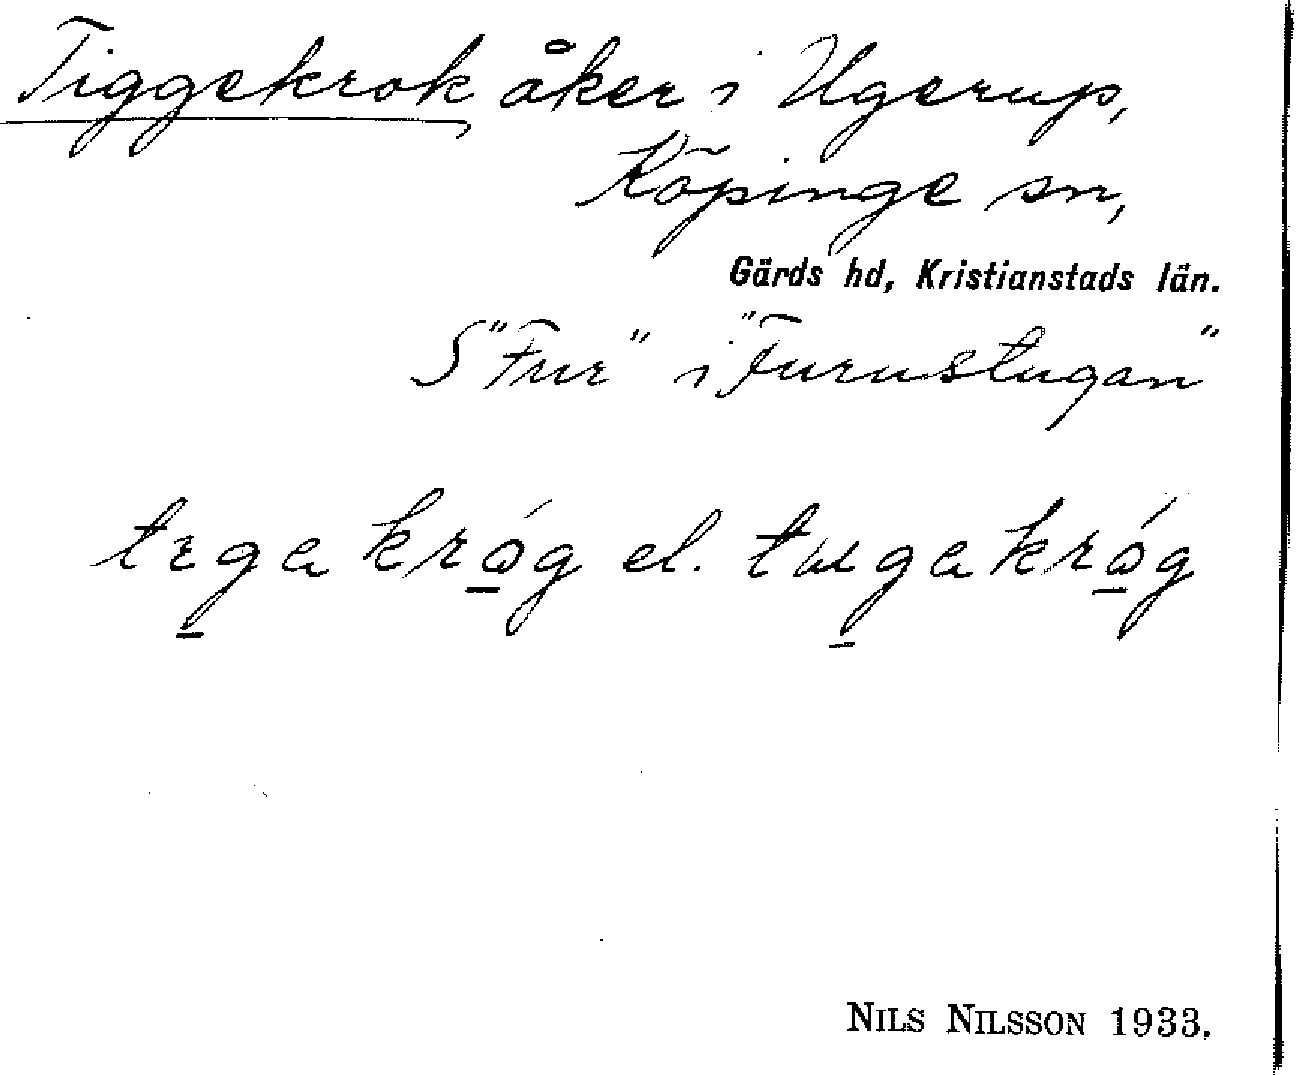 Tiggekrok, åker i Ugerup,
Köpinge sn,
Gärds hd, Kristianstads län.
S "Fur" i "Furustugan"
el.
NILS NILSSON 1933.